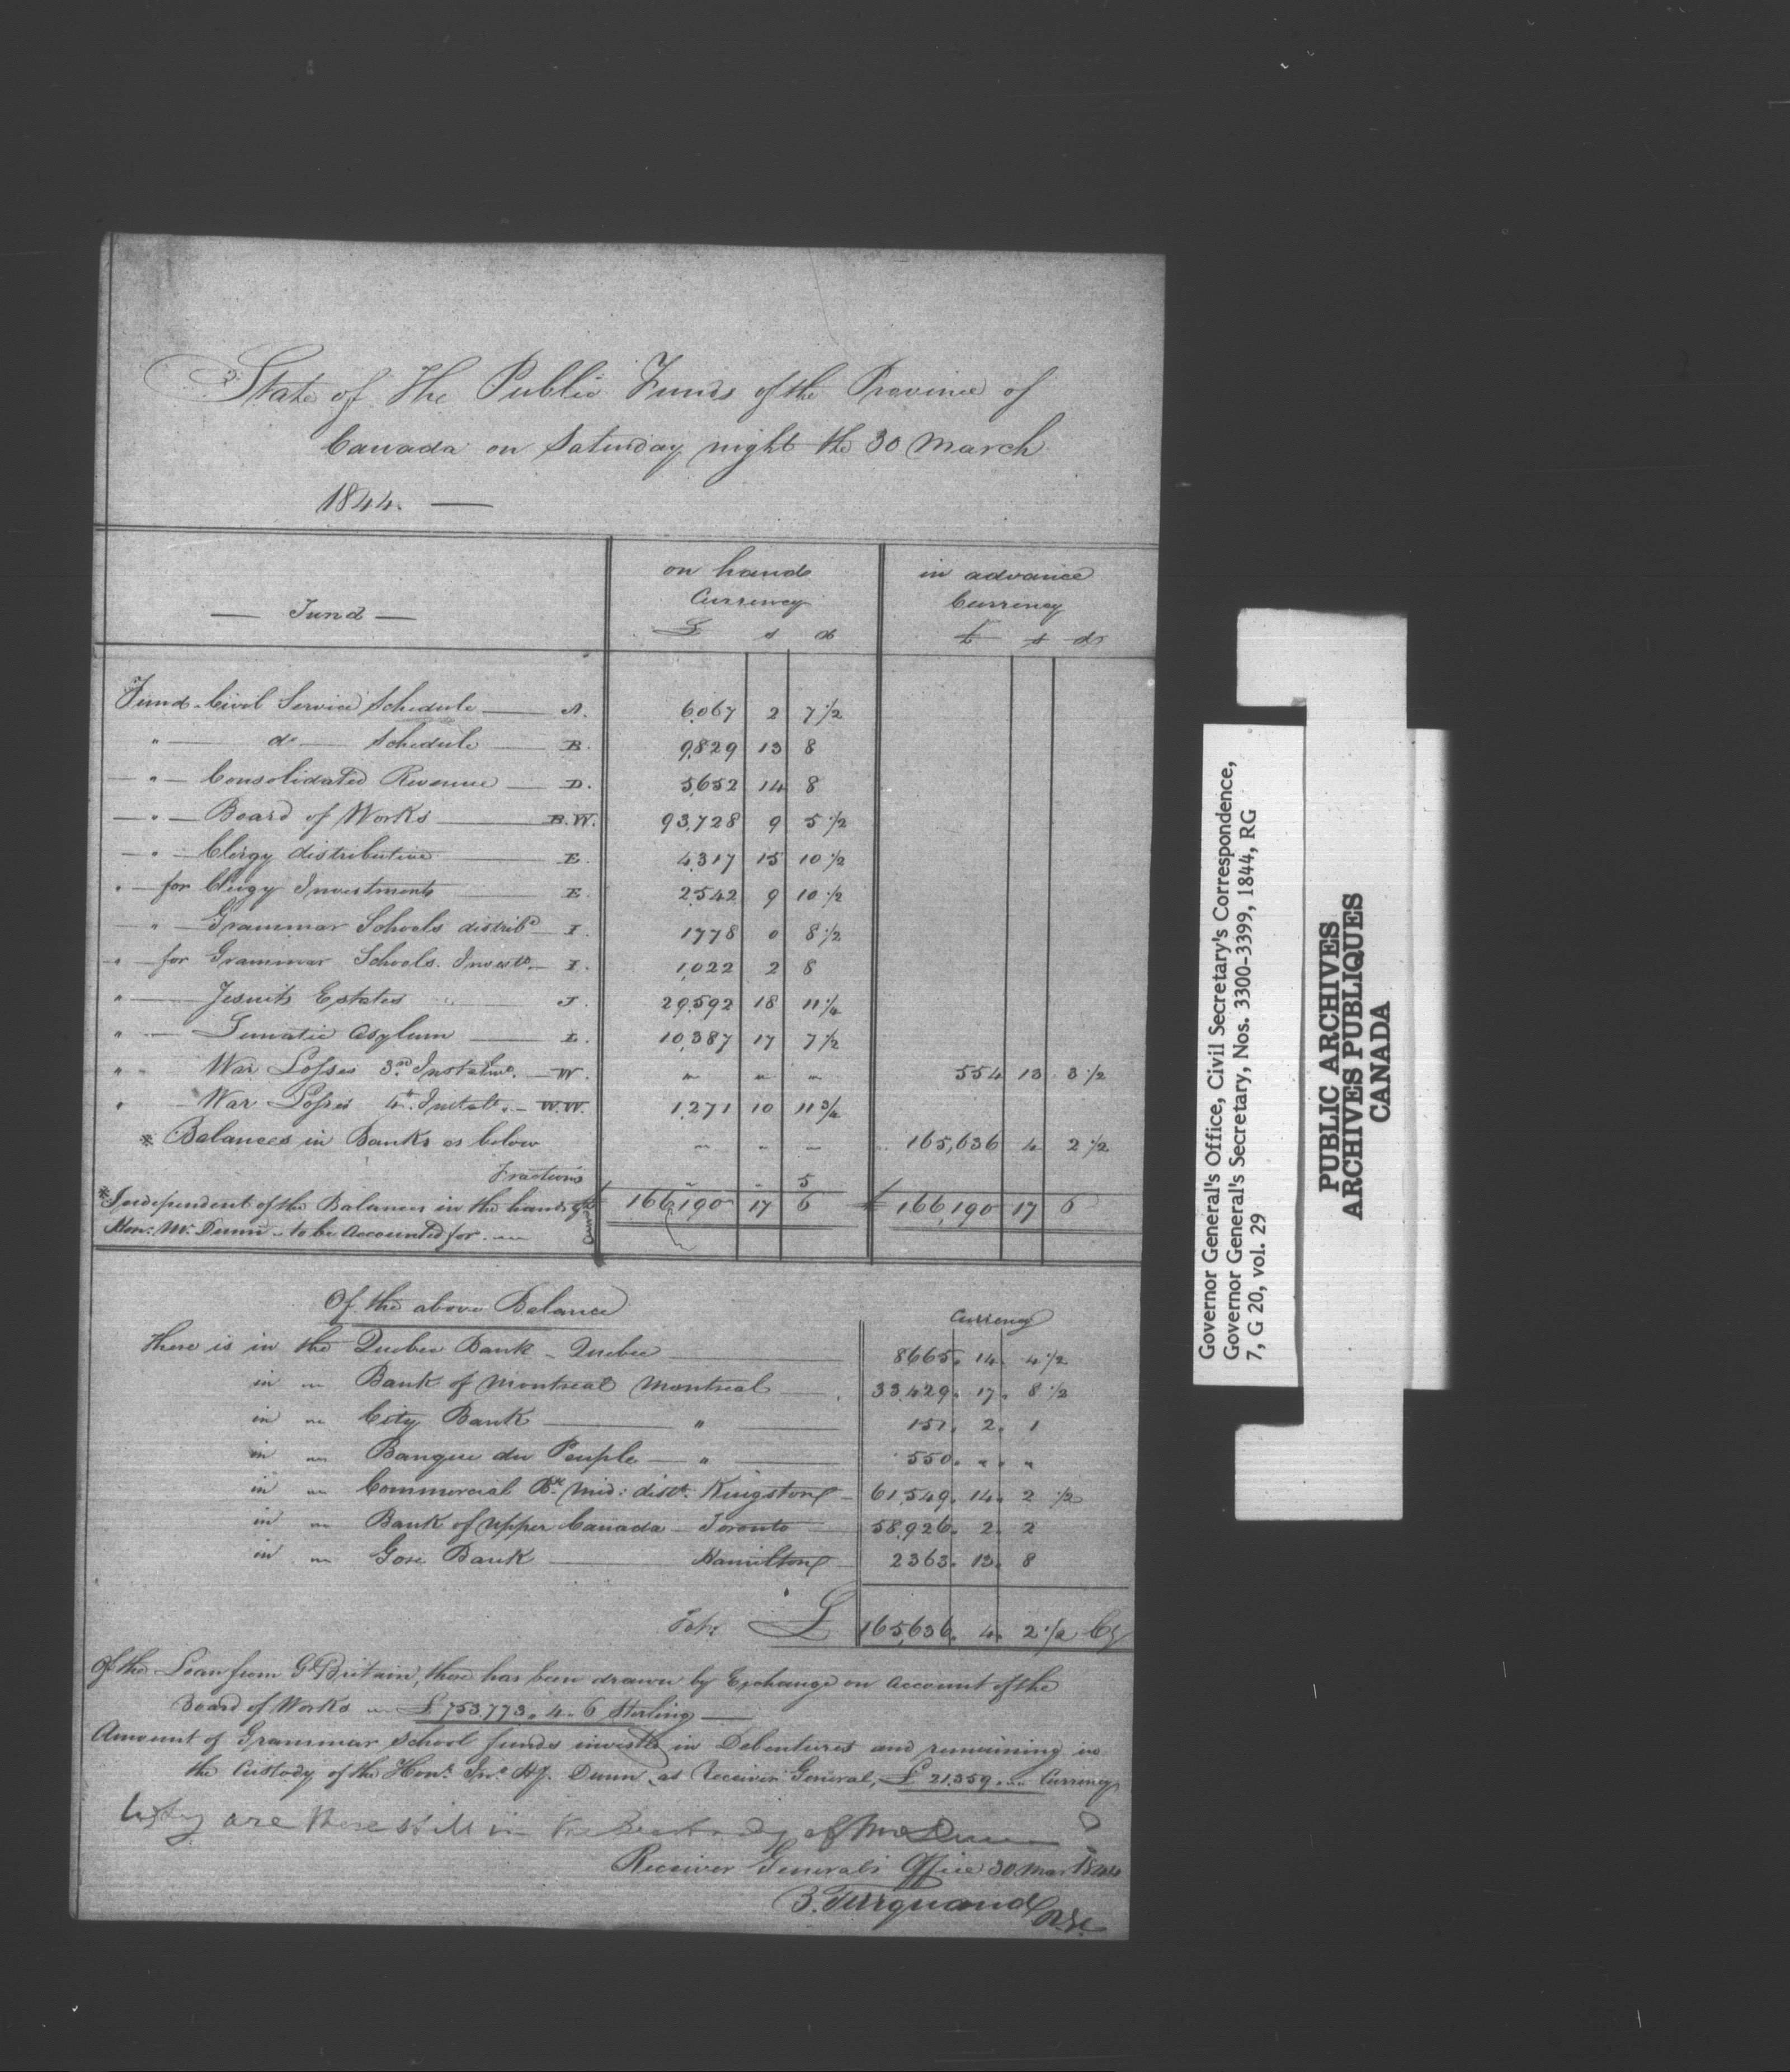 State of The Public Funds of the Province of
Canada on Saturday night the 30 March
1844. —
— Fund —
on hand
Currency
£ s d
in advance
Currency
£ s d
Fund - Civil Service Schedule — A. 6,067 2 7 1/2
" — do — Schedule — B. 9,829 13 8
— " — Consolidated Revenue — D. 5,652 14 8
— " — Board of Works — B.W. 93,728 9 5 1/2
— " — Clergy distributive — E. 4,317 15 10 1/2
" — for Clergy Investments — E. 2,542 9 10 1/2
— " — Grammar Schools distribn — I. 1778 0 8 1/2
— " — for Grammar Schools. Investt. — I. 1,022 2 8
" — Jesuits Estates — J. 29,592 18 11 1/4
" — Lunatic Asylum — L. 10,387 17 7 1/2
" " War Losses 3rd Instalmt. — W. " " " 554 13 3 1/2
" — War Losses 4th Instalt. — W.W. 1,271 10 11 3/4
* Balances in Banks as below " " " 165,636 4 2 1/2
Fractions " " 5
* Independent of the Balances in the hands of the
Hon: Mr. Dunn - to be Accounted for. —
Currcy
£ 166,190 17 6 £ 166,190 17 6
Of the above Balance
Currency
There is in the Quebec Bank - Quebec — 8665. 14. 4 1/2
in " Bank of Montreal Montreal — 33,429. 17. 8 1/2
in " City Bank — " — 151. 2. 1
in " Banque du Peuple — " — 550. " . "
in " Commercial Bk. Mid: distt. Kingston — 61,549. 14. 2 1/2
in " Bank of Upper Canada — Toronto — 58,926. 2. 2
in " Gore Bank — Hamilton — 2363. 13. 8
£ 165,636. 4. 2 1/2 Cy
Of the Loan from Gt Britain, there has been drawn by Exchange on Account of the
Board of Works " £753,773. 4. 6 Sterling —
Amount of Grammar School funds invested in Debentures and remaining in
the Custody of the Honb. Jno. H. Dunn, as Receiver General, £ 21,359. " " Currency
Why are these still in the Custody of Mr Dunn ?
Receiver General's Office 30 Mar 1844
B. Turquand
Governor General's Office, Civil Secretary's Correspondence,
Governor General's Secretary, Nos. 3300-3399, 1844, RG
7, G 20, vol. 29
PUBLIC ARCHIVES
ARCHIVES PUBLIQUES
CANADA